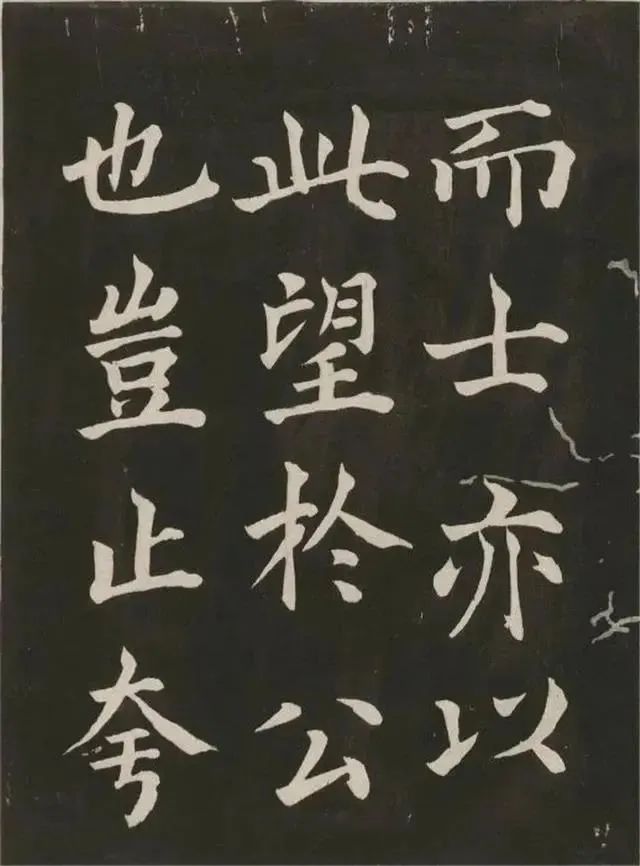 而士亦以
此望於公
也豈止夸